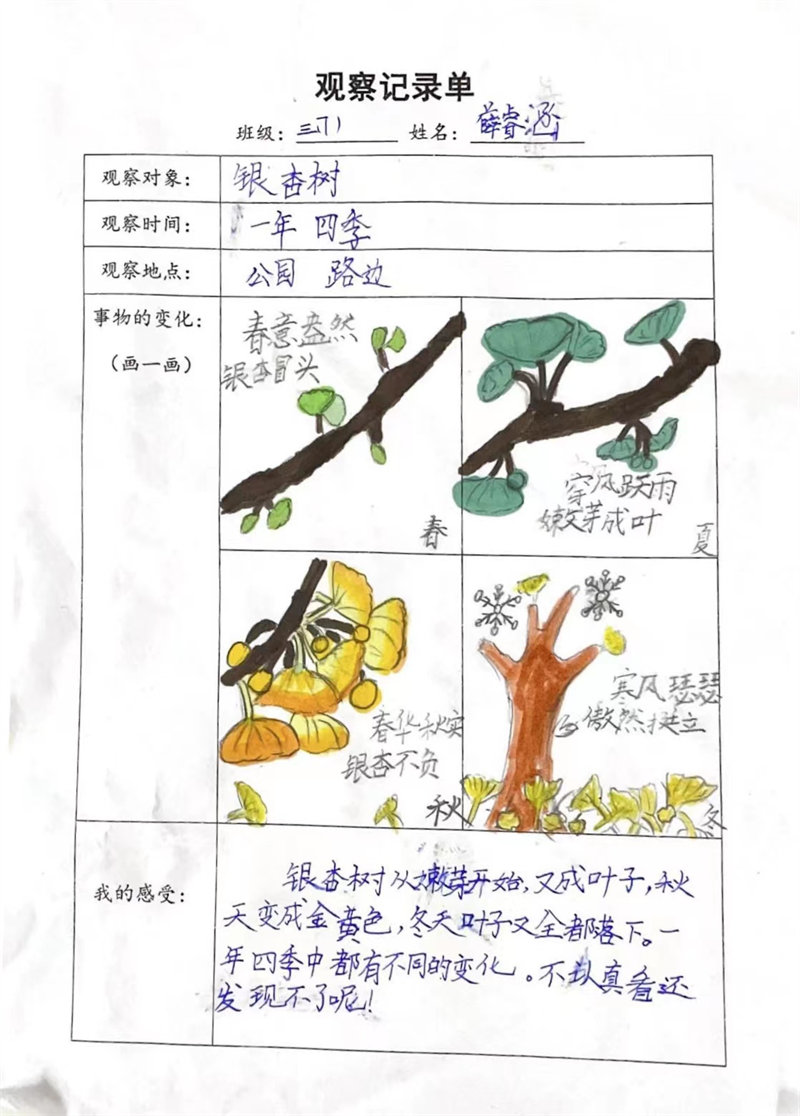 观察记录单
班级：三（1） 姓名：薛睿涵
观察对象： 银杏树
观察时间： 一年 四季
观察地点： 公园 路边
事物的变化：
（画一画）
春意盎然
银杏冒头
春
穿风跃雨
嫩芽成叶
夏
春华秋实
银杏不负
秋
寒风瑟瑟
傲然挺立
冬
我的感受：
银杏树从嫩芽开始，又成叶子，秋
天变成金黄色，冬天叶子又全都落下。一
年四季中都有不同的变化。不认真看还
发现不了呢！